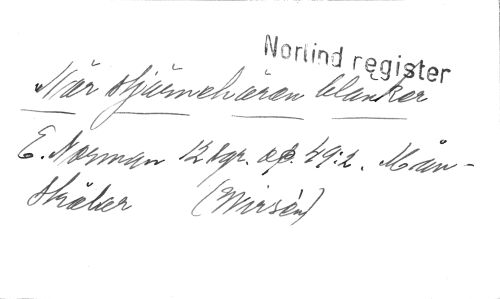 Norlind register
När stjärnehären blänker
E. Norman 12 sgr. op. 49:2. Mån-
skäker (Wirsén)